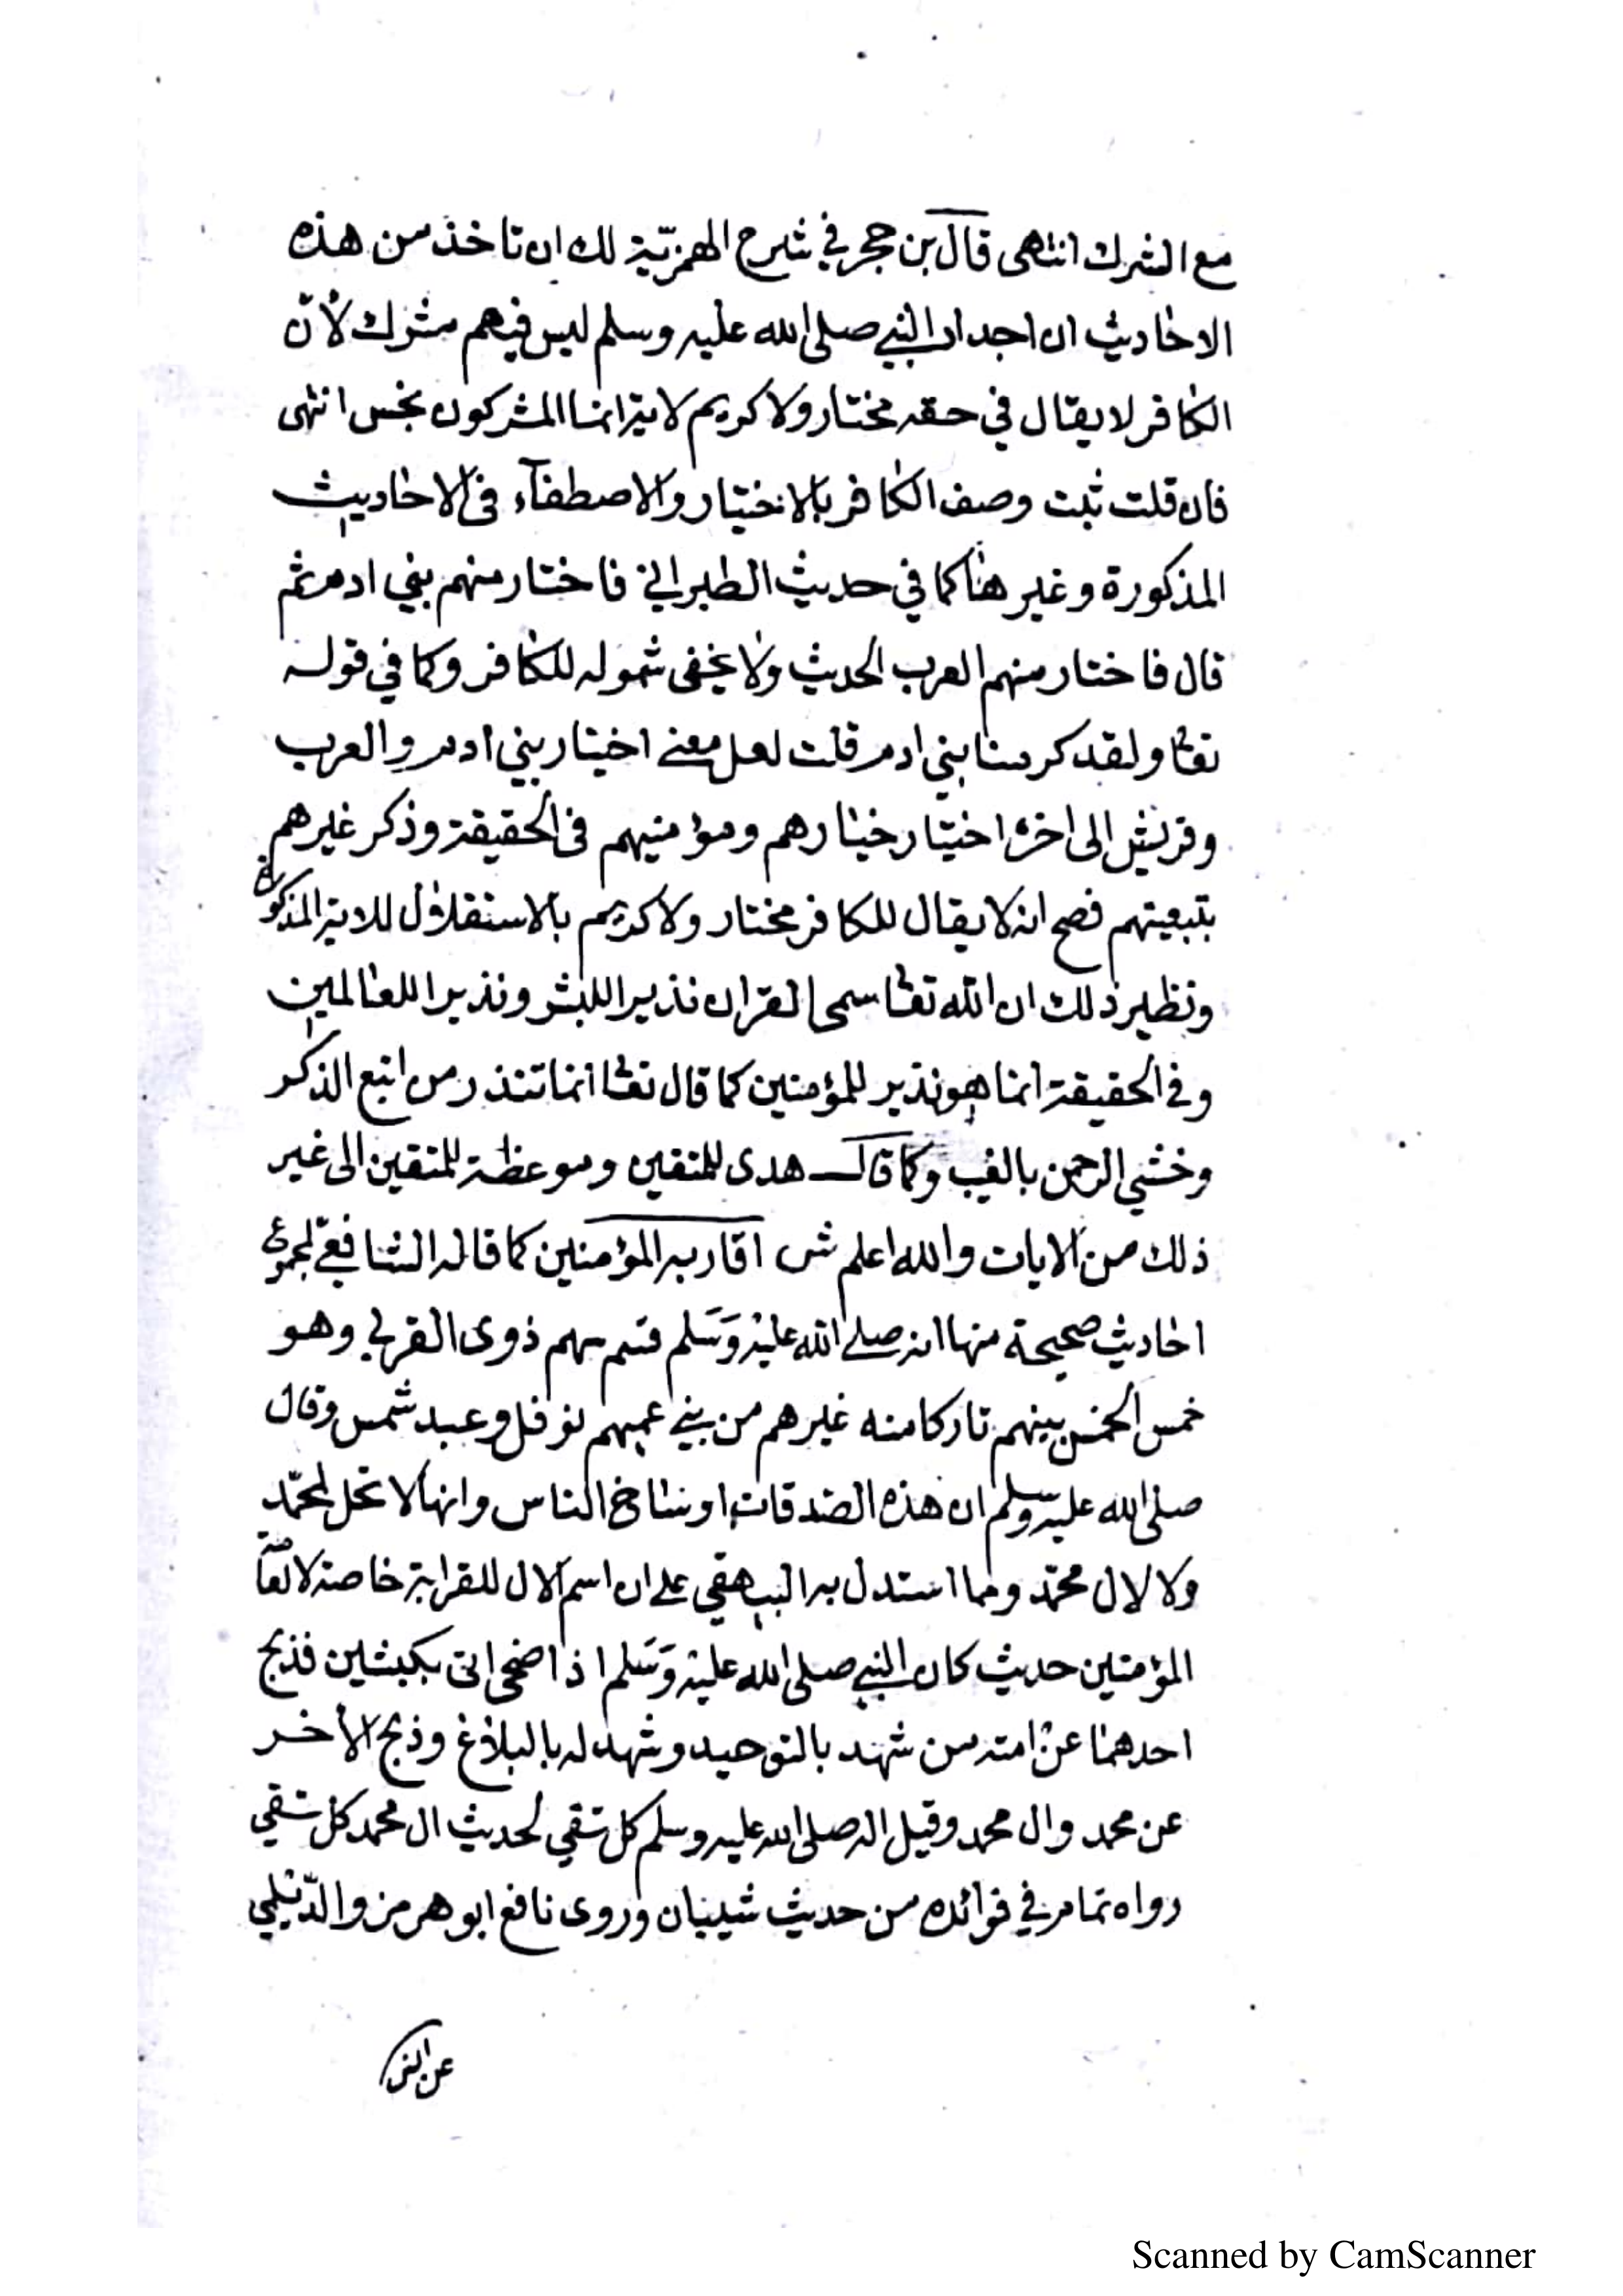 مع الشرك انتهى قال بن حجر في شرح الهمزيّة لك ان تاخذ من هذه
الاحاديث ان اجداد النبي صلى الله عليه وسلم ليس فيهم مشرك لأنّ
الكافر لا يقال في حقه مختار ولا كريم لاية انما المشركون نجس انتهى
فان قلت ثبت وصف الكافر بالاختيار والاصطفآء في الاحاديث
المذكورة وغيرها كما في حديث الطبراني فاختار منهم بني ادم ثم
قال فاختار منهم العرب الحديث ولا يخفى شموله للكافر وكما في قوله
تعا ولقد كرمنا بني ادم قلت لعل معنى اختيار بني ادم والعرب
وقريش الى اخره اختيار خيارهم ومؤمنيهم في الحقيقة وذكر غيرهم
بتبعيتهم فصح انه لا يقال للكافر مختار ولا كريم بالاستقلال للاية المذكورة
ونظير ذلك ان الله تعا سمى القران نذيرا للبشر ونذيرا للعالمين
وفي الحقيقة انما هو نذير للمؤمنين كما قال تعا انما تنذر من اتبع الذكر
وخشي الرحمن بالغيب وكما قال هدى للمتقين وموعظة للمتقين الى غير
ذلك من الايات والله اعلم ش اقاربه المؤمنين كما قاله الشافعيّ لمجموع
احاديث صحيحة منها انه صلى الله عليه وَسَلم قسم سهم ذوى القربى وهو
خمس الخمس بينهم تاركا منه غيرهم من بني عمهم نوفل وعبد شمس وقال
صلى الله عليه وسلم ان هذه الصدقات اوساخ الناس وانها لا تحل لمحمّد
ولا لال محمّد ومما استدل به البيهقي على ان اسم الال للقرابة خاصة لا لعامّة
المؤمنين حديث كان النبي صلى الله عليه وَسَلم اذا ضحى اتى بكبشين فذبح
احدهما عن امته من شهد بالتوحيد وشهد له بالبلاغ وذبح الأخر
عن محمد وال محمد وقيل اله صلى الله عليه وسلم كل تقي لحديث ال محمد كل تقي
رواه تمام في فوائده من حديث شيبان وروى نافع ابو هرمز والدّيلمي
عن انس
Scanned by CamScanner